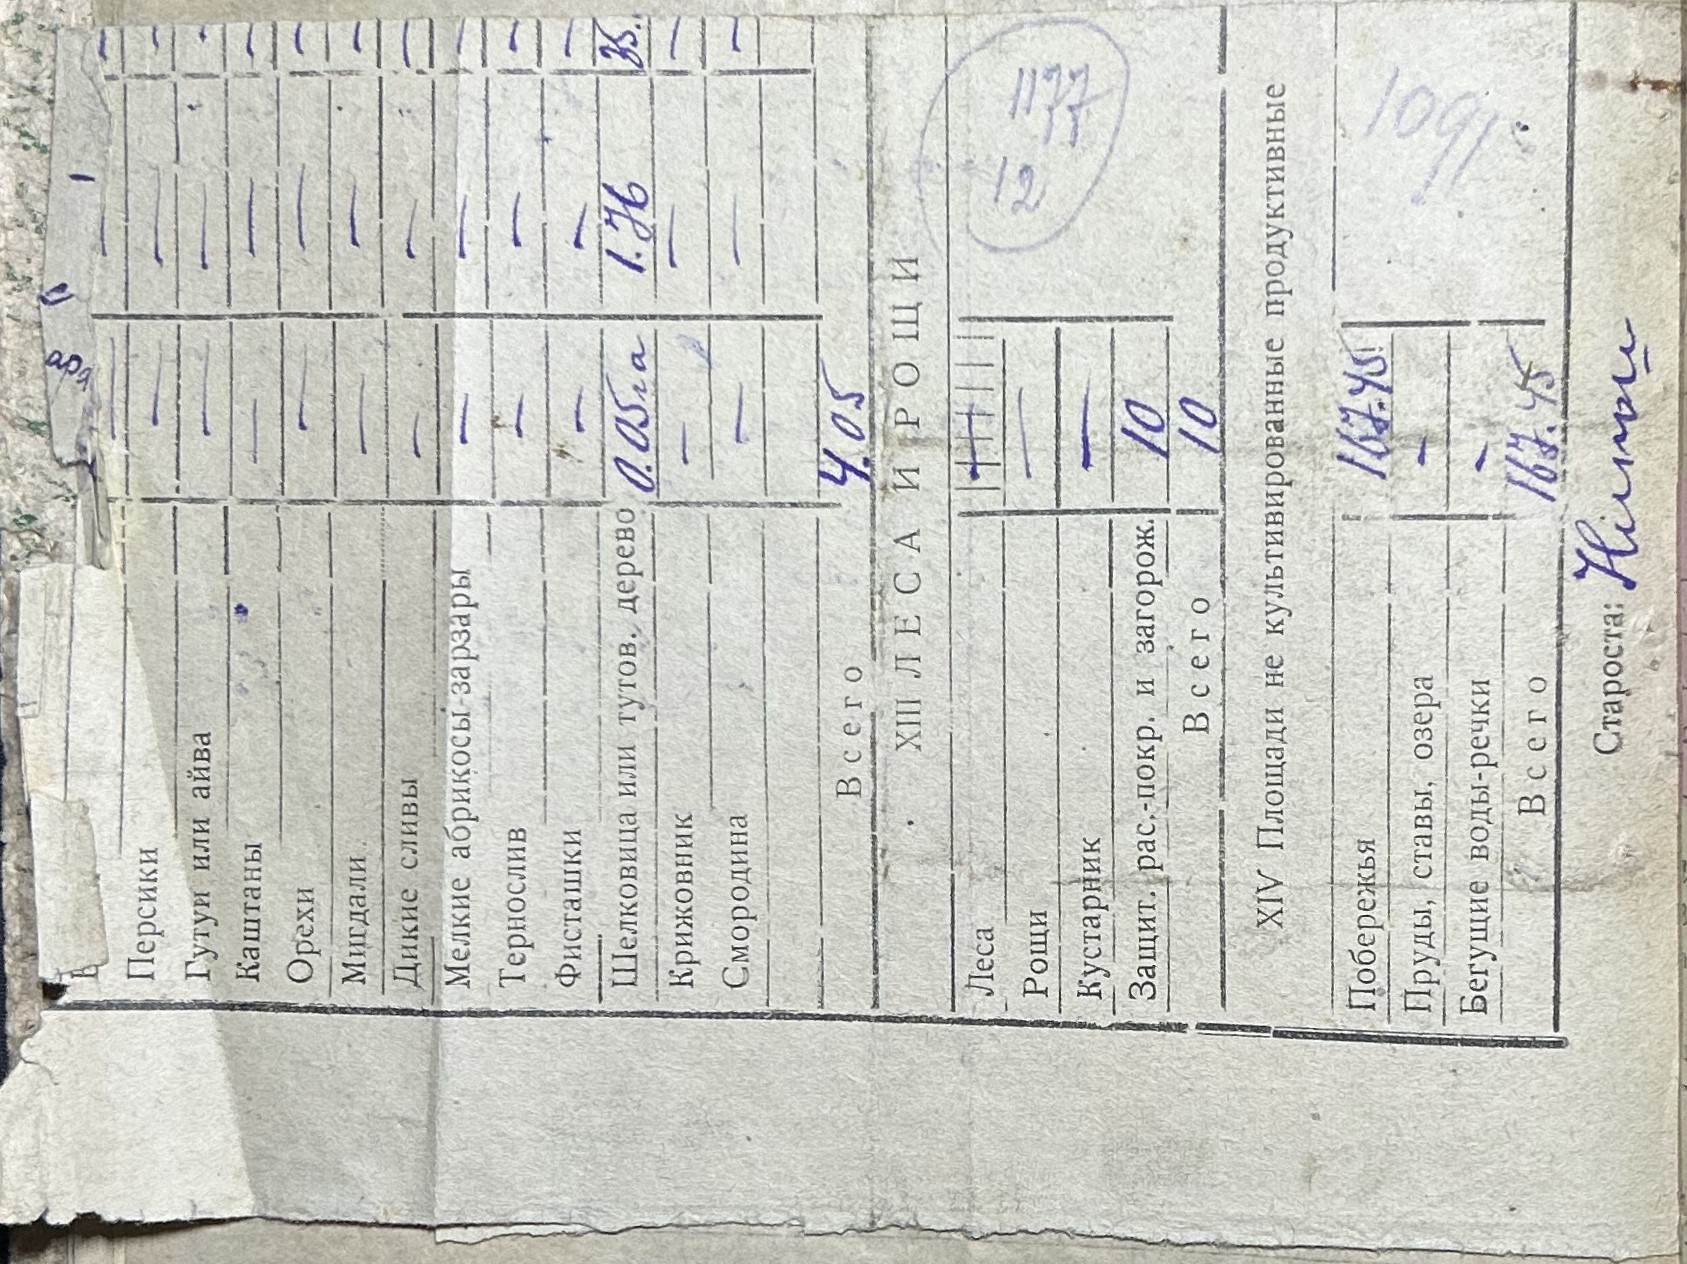 Персики — — —
Гутуи или айва — — —
Каштаны — — —
Орехи — — —
Мигдали — — —
Дикие сливы — — —
Мелкие абрикосы-зарзары — — —
Тернослив — — —
Фисташки — — —
Шелковица или тутов. дерево 0.05га
Крижовник — — —
Смородина — — —
Всего 4.05
XIII ЛЕСА И РОЩИ
Леса —
Рощи —
Кустарник —
Защит. рас.-покр. и загорож. 10
Всего 10
1177
12
XIV Площади не культивированные продуктивные
Побережья 167.45
Пруды, ставы, озера —
Бегущие воды-речки —
Всего 167.45
1091
Староста: